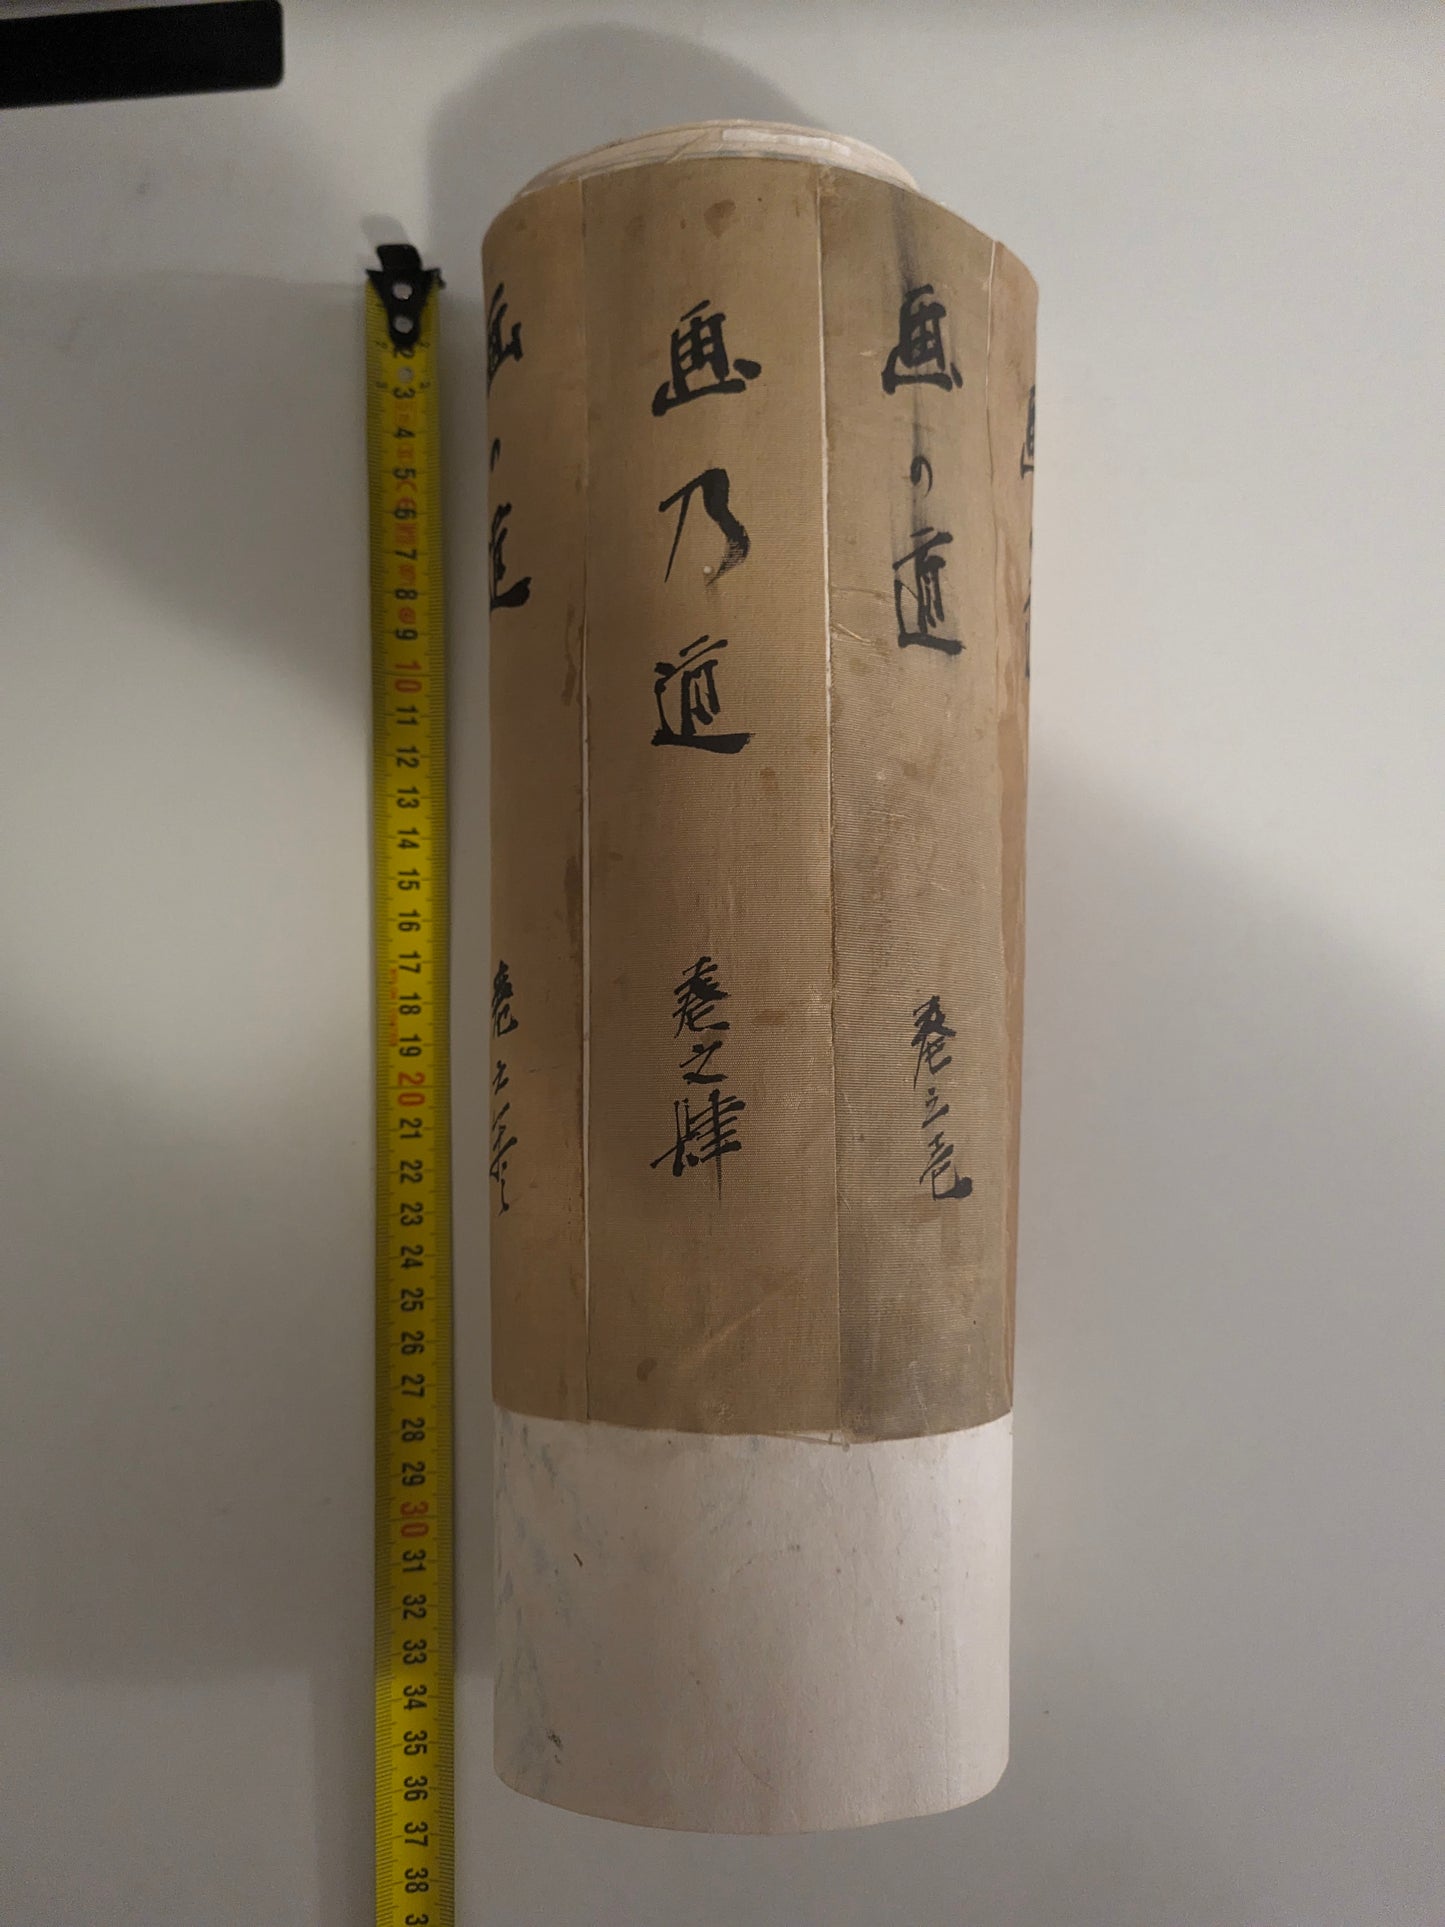 画の道
巻之壱
画乃道
巻之肆
2
3
4
5
6
7
8
9
10
11
12
13
14
15
16
17
18
19
20
21
22
23
24
25
26
27
28
29
30
31
32
33
34
35
36
37
38